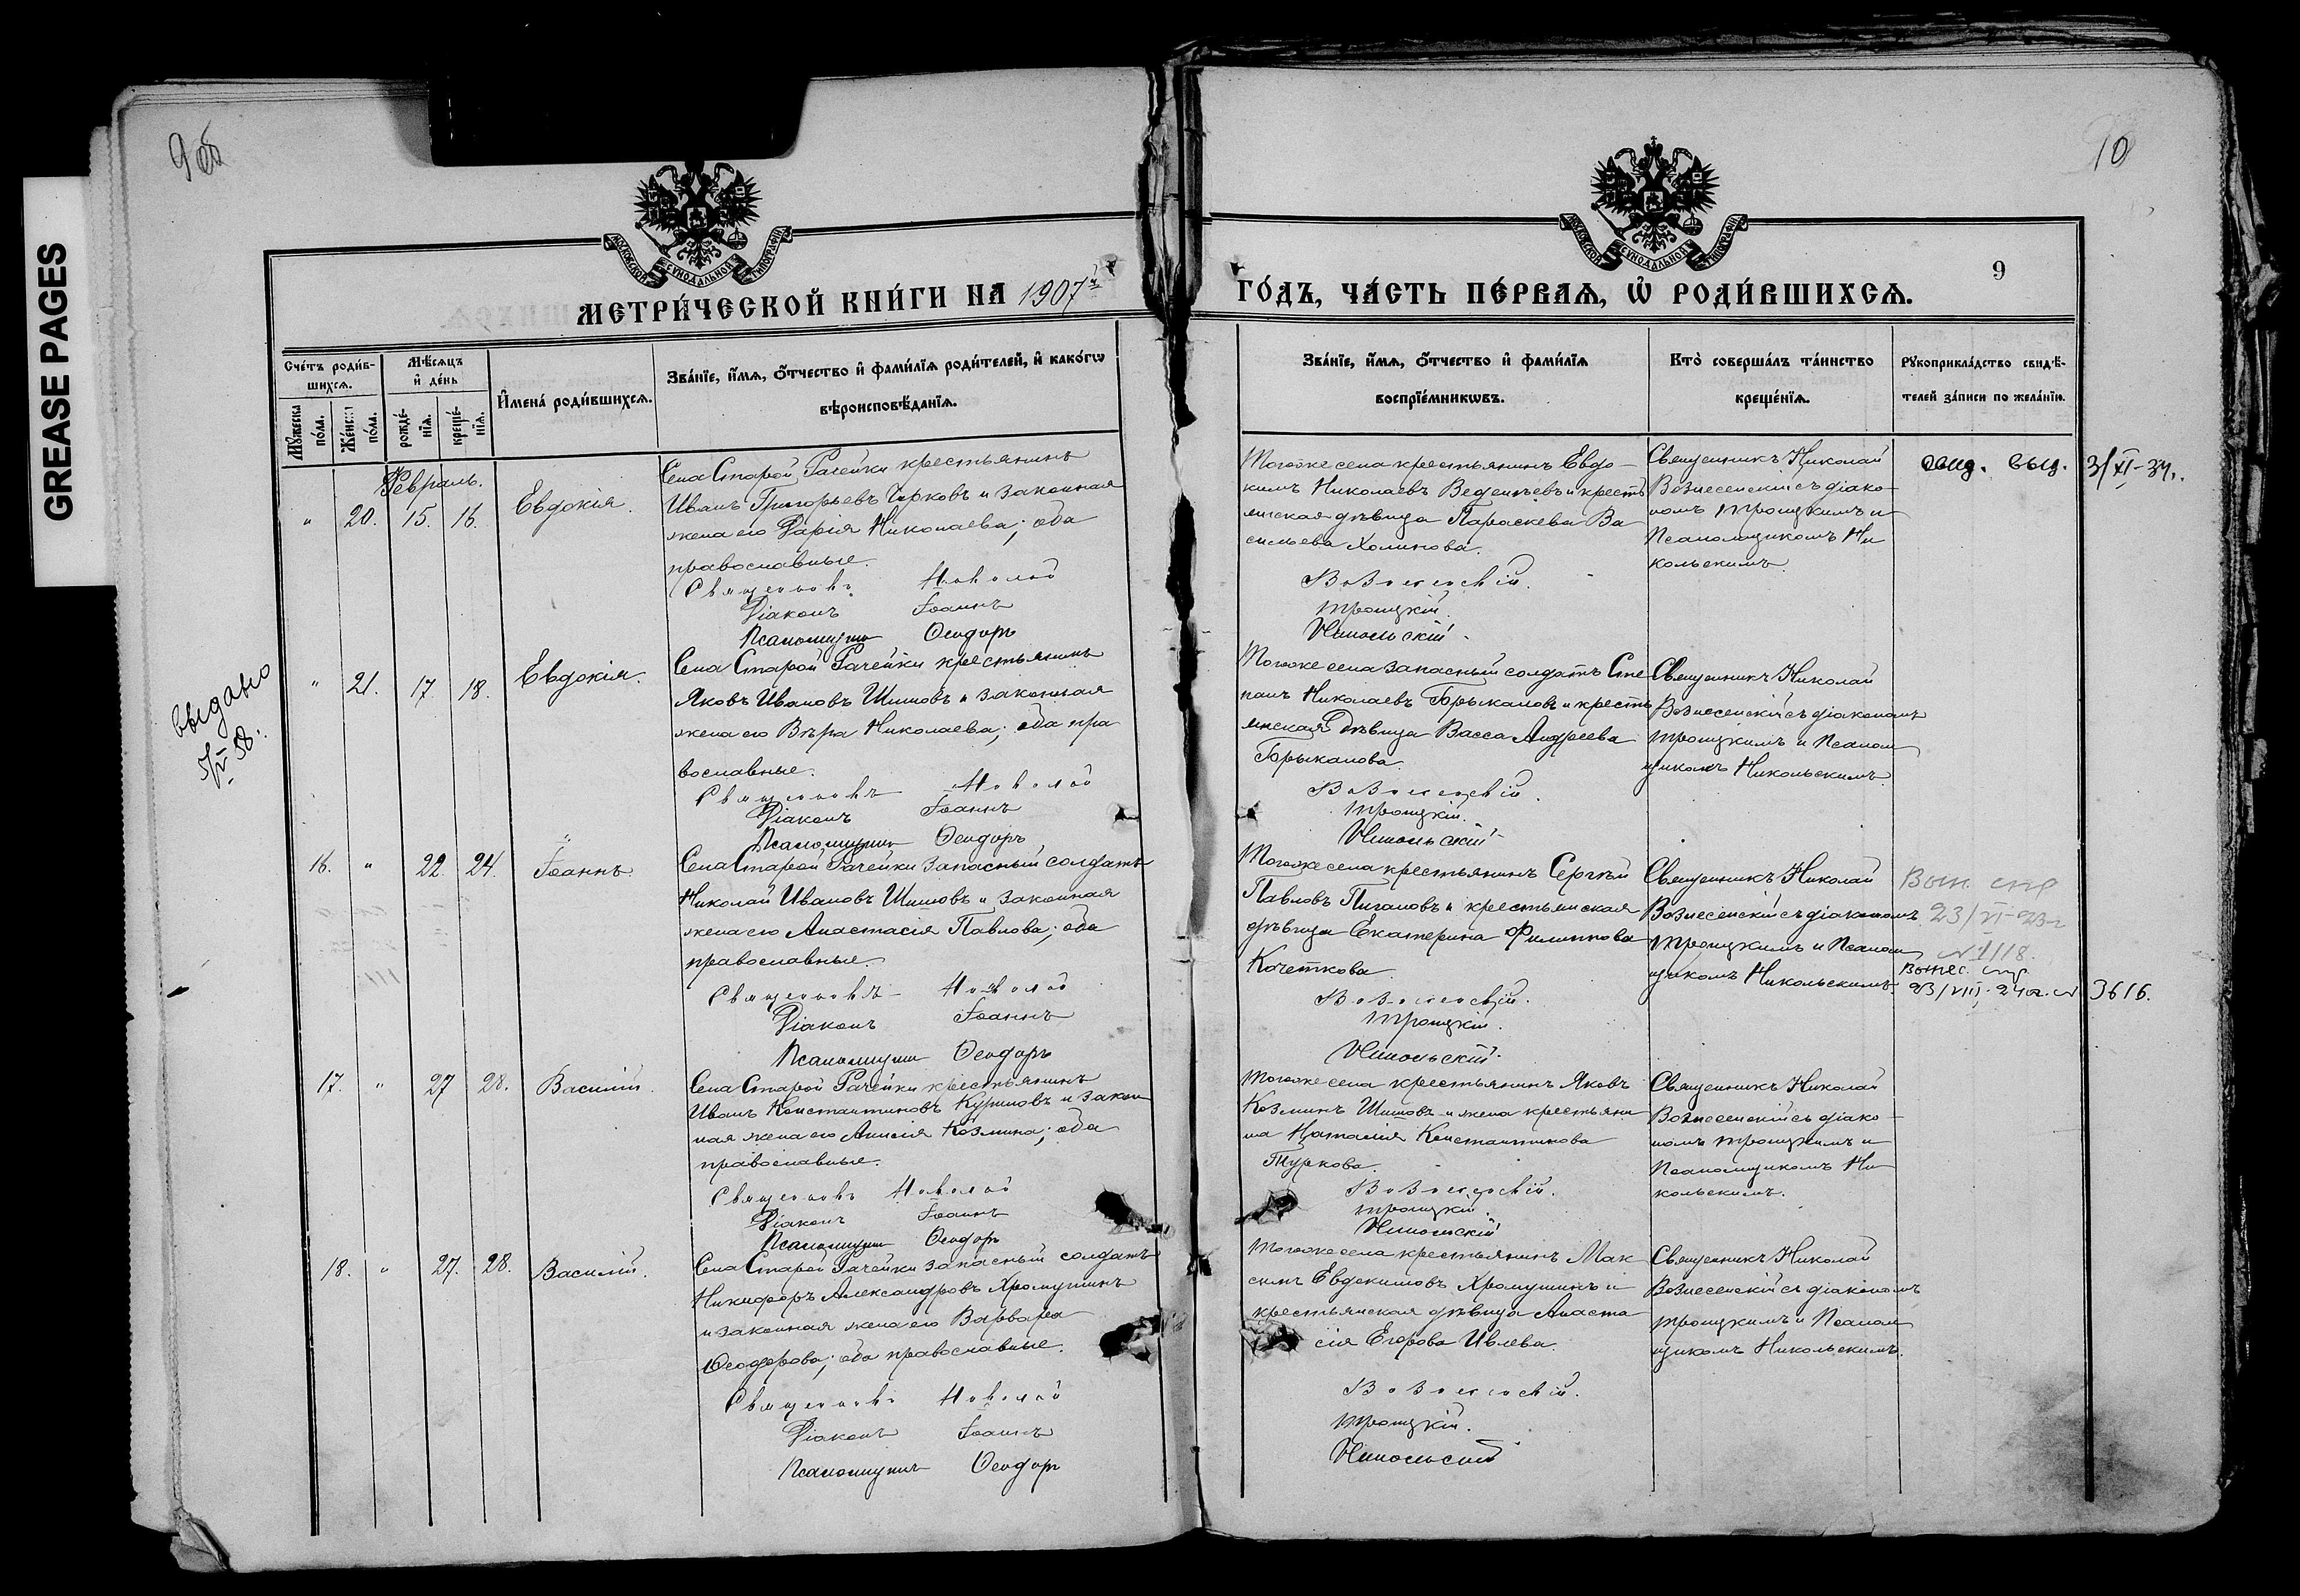 GREASE PAGES
9 об
10
9
МОСКОВСКОЙ СѴНОДАЛЬНОЙ ТИПОГРАФІИ
МОСКОВСКОЙ СѴНОДАЛЬНОЙ ТИПОГРАФІИ
МЕТРИ́ЧЕСКОЙ КНИ́ГИ НА 1907й
ГО́ДЪ, ЧА́СТЬ ПЕ́РВАѦ, Ѡ҆ РОДИ́ВШИХСѦ.
Сче́тъ роди́в-
шихсѧ.
Мѣ́сѧцъ
и҆ де́нь
И҆мена̀ роди́вшихсѧ.
Зва́нїе, и҆́мѧ, ѻ҆́тчество и҆ фамѝлїѧ роди́телей, и҆ како́гѡ
вѣроисповѣ́данїѧ.
Мꙋ́жеска
по́ла.
Же́нска
по́ла.
рожде́-
нїѧ.
креще́-
нїѧ.
Зва́нїе, и҆́мѧ, ѻ҆́тчество и҆ фами́лїѧ
воспрїе́мникѡвъ.
Кто̀ соверша́лъ та́инство
креще́нїѧ.
Рꙋкоприкла́дство свидѣ́-
телей за́писи по жела́нїю.
Февраль.
" 20. 15. 16. Евдокія.
Села Старой Рачейки крестьянинъ
Иванъ Григорьевъ Чорковъ и законная
жена его Дарія Николаева; оба
православные.
Священникъ Николай
Діаконъ Іоаннъ
Псаломщикъ Ѳеодоръ
Тогоже села крестьянинъ Евдо-
кимъ Николаевъ Веденѣевъ и кресть
янская дѣвица Параскева Ва
сильева Холинова.
Вознесенскій.
Троицкій.
Никольскій.
Священникъ Николай
Вознесенскій съ діако-
номъ Троицкимъ и
Псаломщикомъ Ни
кольскимъ.
выд. 3/XI-37г.
выдано
5/V 58.
" 21. 17. 18. Евдокія.
Села Старой Рачейки крестьянинъ
Яковъ Ивановъ Шишовъ и законная
жена его Вѣра Николаева; оба пра
вославные.
Священникъ Николай
Діаконъ Іоаннъ
Псаломщикъ Ѳеодоръ
Тогоже села запасный солдатъ Сте
панъ Николаевъ Брыкаловъ и кресть
янская дѣвица Васса Андреева
Брыкалова.
Вознесенскій.
Троицкій.
Никольскій
Священникъ Николай
Вознесенскій съ діакономъ
Троицкимъ и Псалом
щикомъ Никольскимъ.
16. " 22. 24. Іоаннъ.
Села Старой Рачейки запасный солдатъ
Николай Ивановъ Шишовъ и законная
жена его Анастасія Павлова; оба
православные.
Священникъ Николай
Діаконъ Іоаннъ
Псаломщикъ Ѳеодоръ
Тогоже села крестьянинъ Сергѣй
Павловъ Пигановъ и крестьянская
дѣвица Екатерина Филиппова
Кочеткова.
Вознесенскій.
Троицкій.
Никольскій.
Священникъ Николай
Вознесенскій съ діакономъ
Троицкимъ и Псалом
щикомъ Никольскимъ.
23/VI-23г
№ 1118.
23/VIII-24г. № 3616.
17. " 27 28. Василій.
Села Старой Рачейки крестьянинъ
Иванъ Константиновъ Куриновъ и закон
ная жена его Анисія Козмина; оба
православные.
Священникъ Николай
Діаконъ Іоаннъ
Псаломщикъ Ѳеодоръ
Тогоже села крестьянинъ Яковъ
Козминъ Шишовъ и жена крестьяни
на Наталія Константинова
Туркова.
Вознесенскій.
Троицкій.
Никольскій
Священникъ Николай
Вознесенскій съ діако-
номъ Троицкимъ и
Псаломщикомъ Ни
кольскимъ.
18. " 27. 28. Василій.
Села Старой Рачейки запасный солдатъ
Никифоръ Александровъ Хромушинъ
и законная жена его Варвара
Ѳеодорова; оба православные.
Священникъ Николай
Діаконъ Іоаннъ
Псаломщикъ Ѳеодоръ
Тогоже села крестьянинъ Мак
симъ Евдокимовъ Хромушинъ и
крестьянская дѣвица Анаста
сія Егорова Ивлева.
Вознесенскій.
Троицкій.
Никольскій
Священникъ Николай
Вознесенскій съ діакономъ
Троицкимъ и Псалом
щикомъ Никольскимъ.